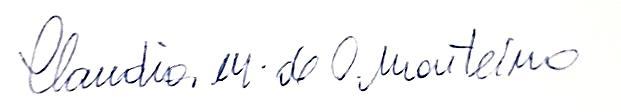 Claudia, M. de O. Monteiro